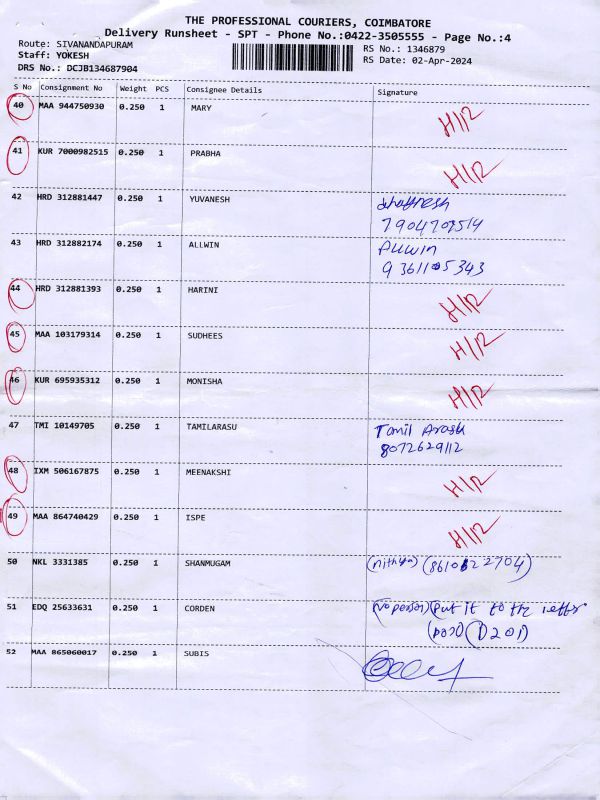 THE PROFESSIONAL COURIERS, COIMBATORE
Delivery Runsheet - SPT - Phone No.:0422-3505555 - Page No.:4
Route: SIVANANDAPURAM
Staff: YOKESH
DRS No.: DCJB134687904
RS No.: 1346879
RS Date: 02-Apr-2024
S No Consignment No Weight PCS Consignee Details Signature
40 MAA 944750930 0.250 1 MARY H/R
41 KUR 7000982515 0.250 1 PRABHA H/R
42 HRD 312881447 0.250 1 YUVANESH
7904707514
43 HRD 312882174 0.250 1 ALLWIN Allwin
9361105343
44 HRD 312881393 0.250 1 HARINI H/R
45 MAA 103179314 0.250 1 SUDHEES H/R
46 KUR 695935312 0.250 1 MONISHA H/R
47 TMI 10149705 0.250 1 TAMILARASU Tamil Arasu
8072629112
48 IXM 506167875 0.250 1 MEENAKSHI H/R
49 MAA 864740429 0.250 1 ISPE H/R
50 NKL 3331385 0.250 1 SHANMUGAM (Nithya) (8610622704)
51 EDQ 25633631 0.250 1 CORDEN (No person) (Put it to the letter
(D201)
52 MAA 865060017 0.250 1 SUBIS